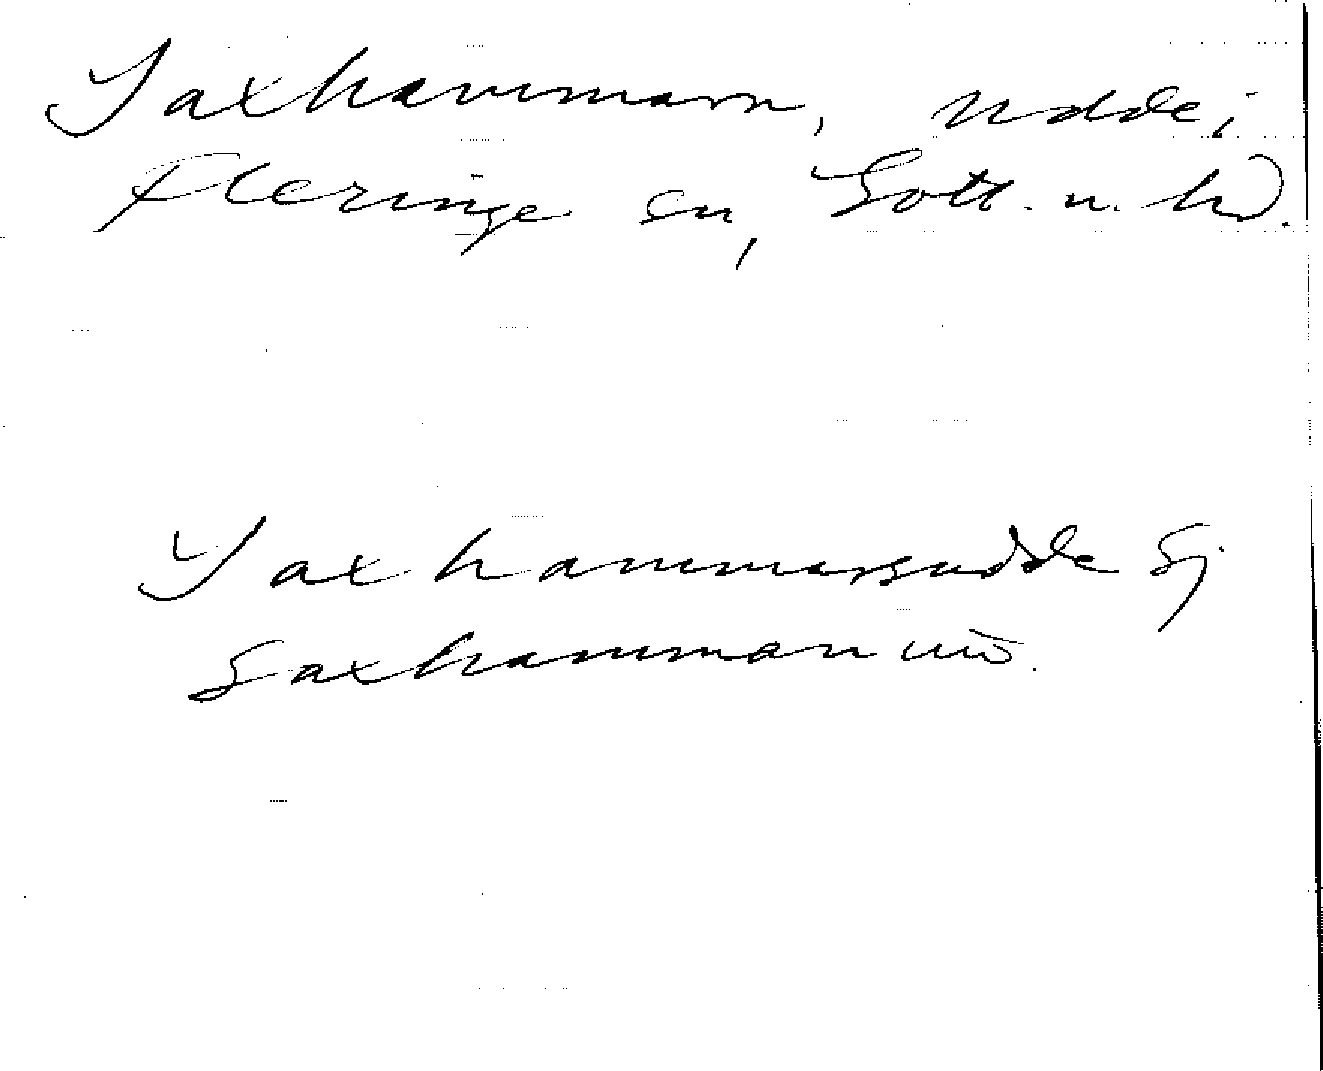 Saxhammarn, udde i
Fleringe sn, Gotl. n. hd.
Saxhammarsudde Sj
Saxhammarn